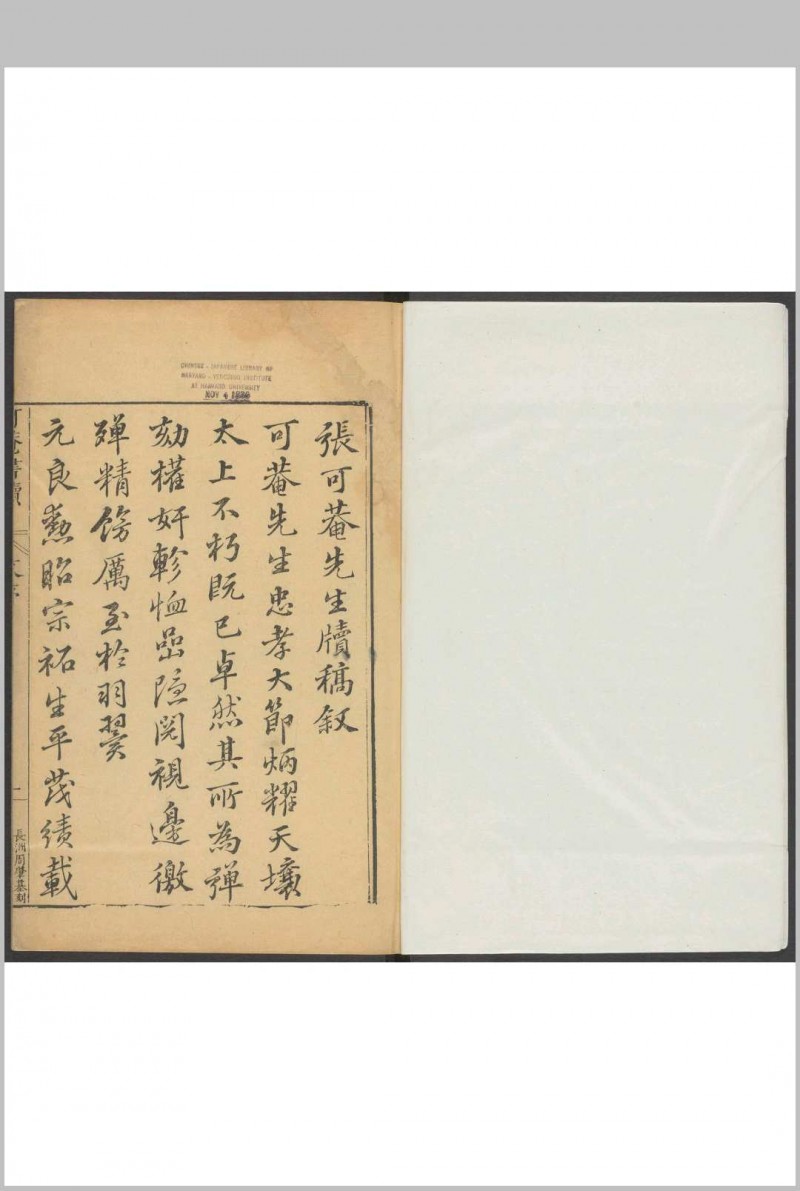 張可菴先生牘稿叙
可菴先生忠孝大節炳耀天壤
太上不朽既已卓然其所為彈
劾權奸軫恤嵒隱閱視邊徼
殫精飭厲至於羽翼
元良勲昭宗祏生平茂績載
可菴書牘
長洲周肇基刻
CHINESE - JAPANESE LIBRARY OF
HARVARD - YENCHING INSTITUTE
AT HARVARD UNIVERSITY
NOV 4 1939